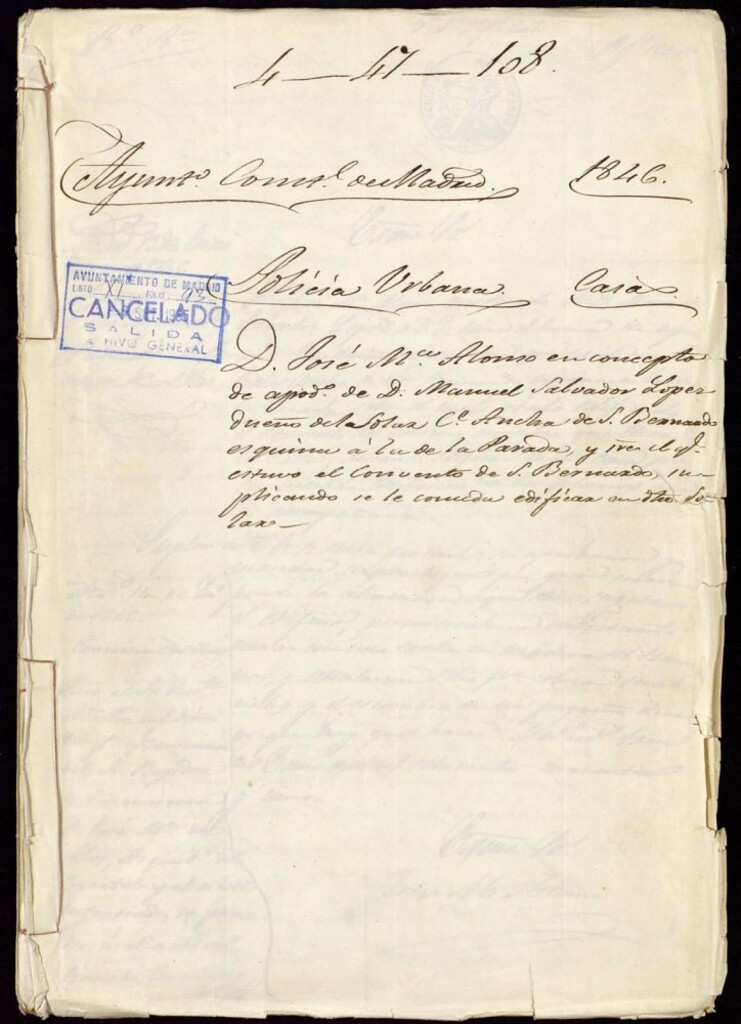 4 — 47 — 108.
Ayunto. Consl. de Madrid. 1846.
Policia Urbana. Casas.
AYUNTAMIENTO DE MADRID
LIBRO XI FOLIO 93
CANCELADO
SALIDA
ARCHIVO GENERAL
D. José Ma. Alonso en concepto
de apodo. de D. Manuel Salvador Lopez
dueño del Solar Ce. Ancha de S. Bernardo
esquina á la de la Parada, y
estuvo el Convento de S. Bernardo, su-
plicando se le conceda edificar en dho So-
lar —